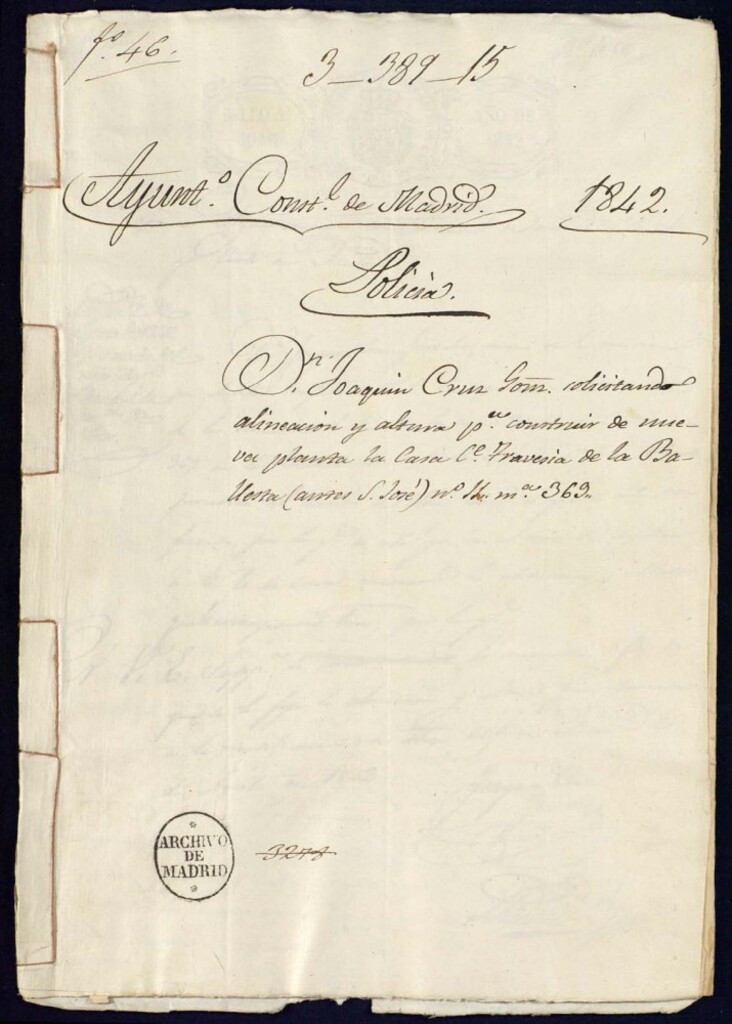 fº. 46.
3-389-15
Ayuntº. Constl. de Madrid. 1842.
Policia.
Dn. Joaquin Cruz solicitando
alineacion y altura pa. construir de nue-
va planta la Casa Ce. Travesia de la Ba-
llesta (antes S. José) nº. 14. ma. 363.
ARCHIVO
DE
MADRID
3278